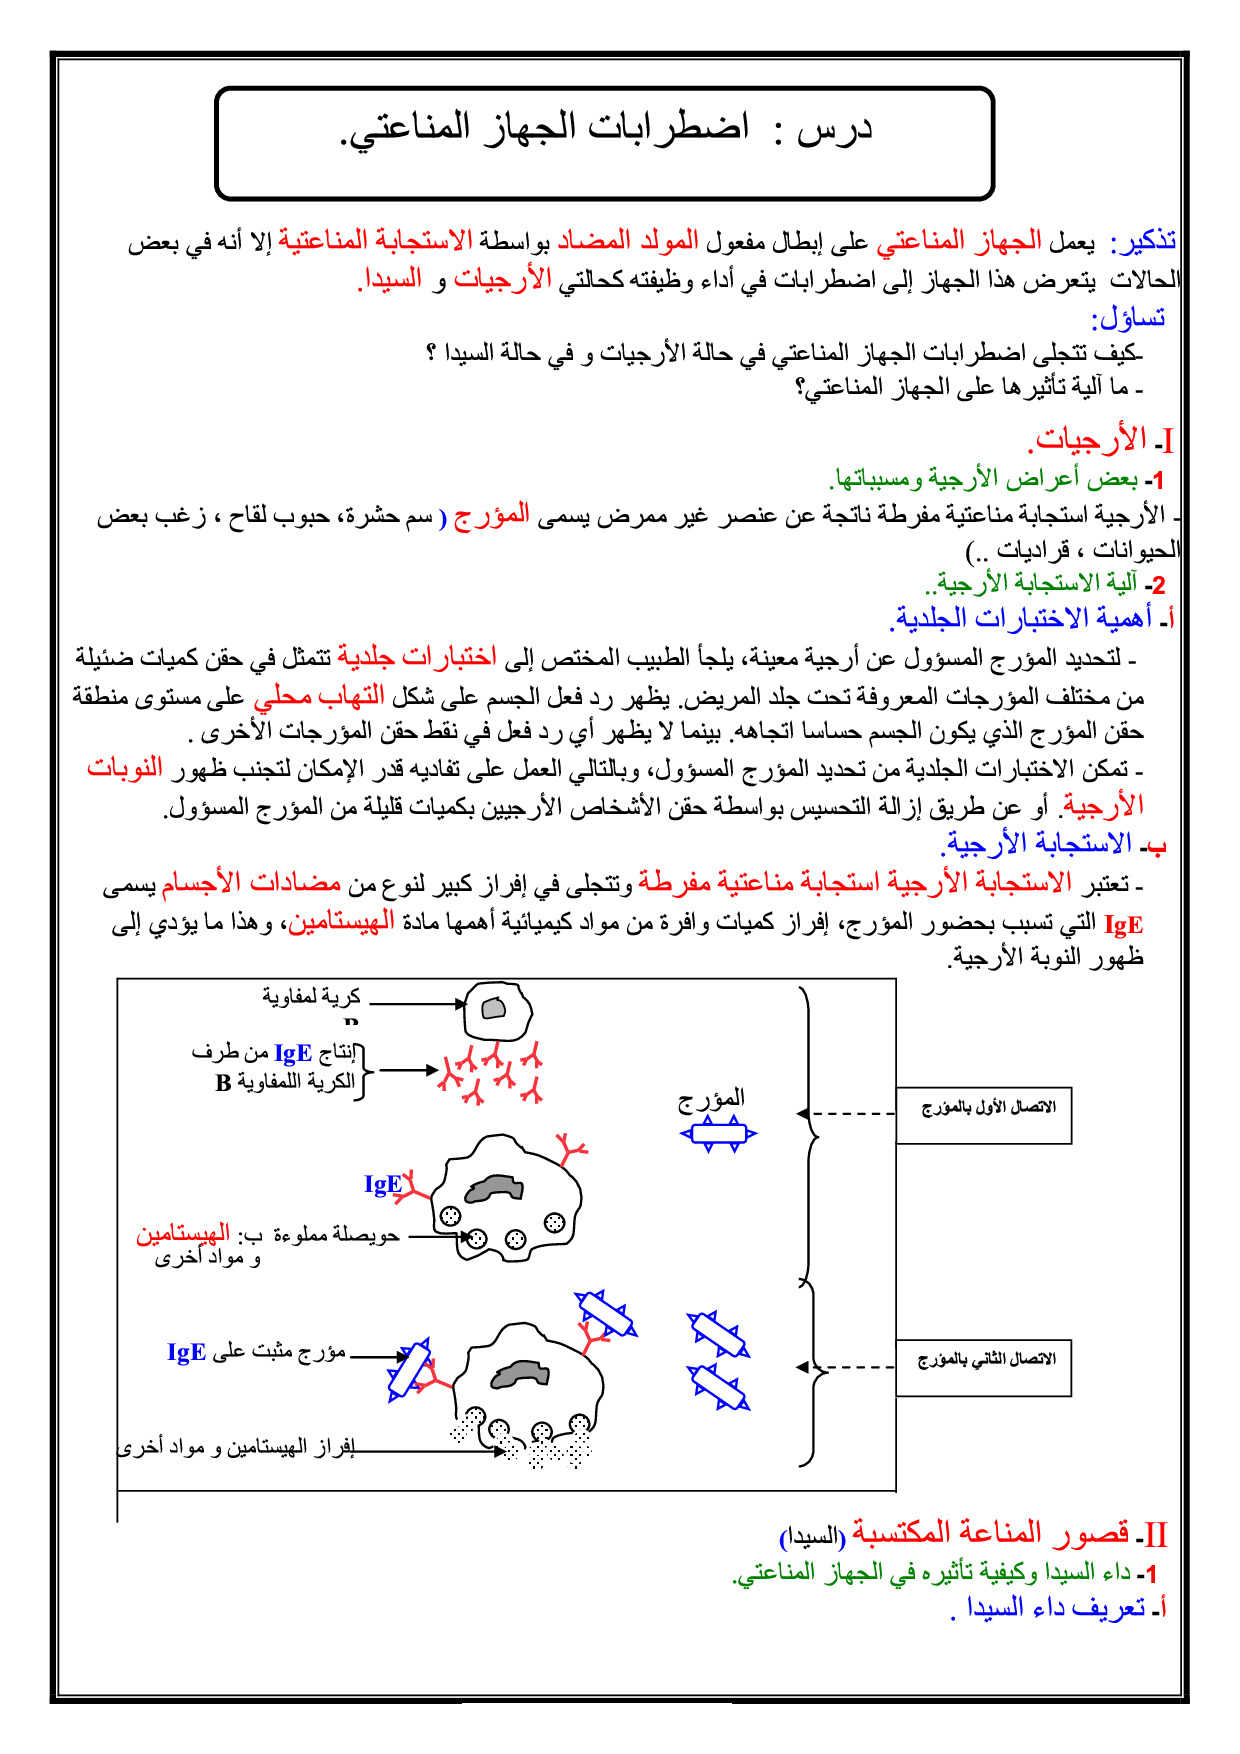 درس : اضطرابات الجهاز المناعتي.
تذكير: يعمل الجهاز المناعتي على إبطال مفعول المولد المضاد بواسطة الاستجابة المناعتية إلا أنه في بعض
الحالات يتعرض هذا الجهاز إلى اضطرابات في أداء وظيفته كحالتي الأرجيات و السيدا.
تساؤل:
-كيف تتجلى اضطرابات الجهاز المناعتي في حالة الأرجيات و في حالة السيدا ؟
- ما آلية تأثيرها على الجهاز المناعتي؟
I- الأرجيات.
1- بعض أعراض الأرجية ومسبباتها.
- الأرجية استجابة مناعتية مفرطة ناتجة عن عنصر غير ممرض يسمى المؤرج ( سم حشرة، حبوب لقاح ، زغب بعض
الحيوانات ، قراديات ..)
2- آلية الاستجابة الأرجية..
أ- أهمية الاختبارات الجلدية.
- لتحديد المؤرج المسؤول عن أرجية معينة، يلجأ الطبيب المختص إلى اختبارات جلدية تتمثل في حقن كميات ضئيلة
من مختلف المؤرجات المعروفة تحت جلد المريض. يظهر رد فعل الجسم على شكل التهاب محلي على مستوى منطقة
حقن المؤرج الذي يكون الجسم حساسا اتجاهه. بينما لا يظهر أي رد فعل في نقط حقن المؤرجات الأخرى .
- تمكن الاختبارات الجلدية من تحديد المؤرج المسؤول، وبالتالي العمل على تفاديه قدر الإمكان لتجنب ظهور النوبات
الأرجية. أو عن طريق إزالة التحسيس بواسطة حقن الأشخاص الأرجيين بكميات قليلة من المؤرج المسؤول.
ب- الاستجابة الأرجية.
- تعتبر الاستجابة الأرجية استجابة مناعتية مفرطة وتتجلى في إفراز كبير لنوع من مضادات الأجسام يسمى
IgE التي تسبب بحضور المؤرج، إفراز كميات وافرة من مواد كيميائية أهمها مادة الهيستامين، وهذا ما يؤدي إلى
ظهور النوبة الأرجية.
كرية لمفاوية
B
إنتاج IgE من طرف
الكرية اللمفاوية B
المؤرج
الاتصال الأول بالمؤرج
IgE
حويصلة مملوءة ب: الهيستامين
و مواد أخرى
مؤرج مثبت على IgE
الاتصال الثاني بالمؤرج
إفراز الهيستامين و مواد أخرى
II- قصور المناعة المكتسبة (السيدا)
1- داء السيدا وكيفية تأثيره في الجهاز المناعتي.
أ- تعريف داء السيدا .